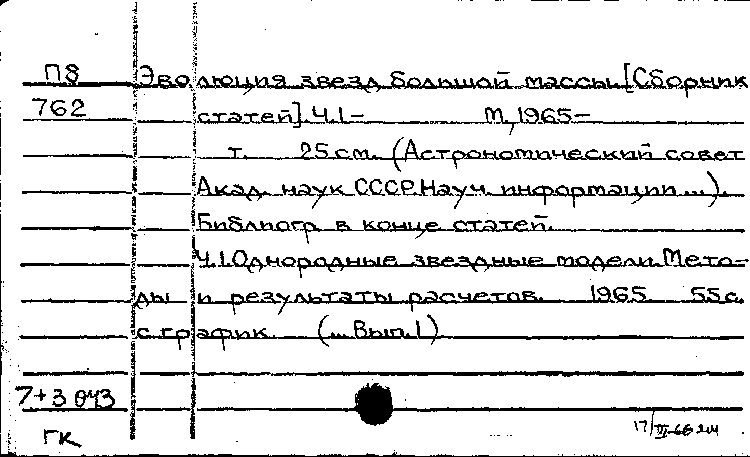 П8 Эволюция звезд большой массы. [Сборник
762 статей]. Ч.1– М., 1965–
т. 25 см. (Астрономический совет
Акад. наук СССР. Науч. информации ...).
Библиогр. в конце статей.
Ч.1. Однородные звездные модели. Мето-
ды и результаты расчетов. 1965. 55 с.
с график. (... Вып. 1)
7+3 ОЧЗ
ГК